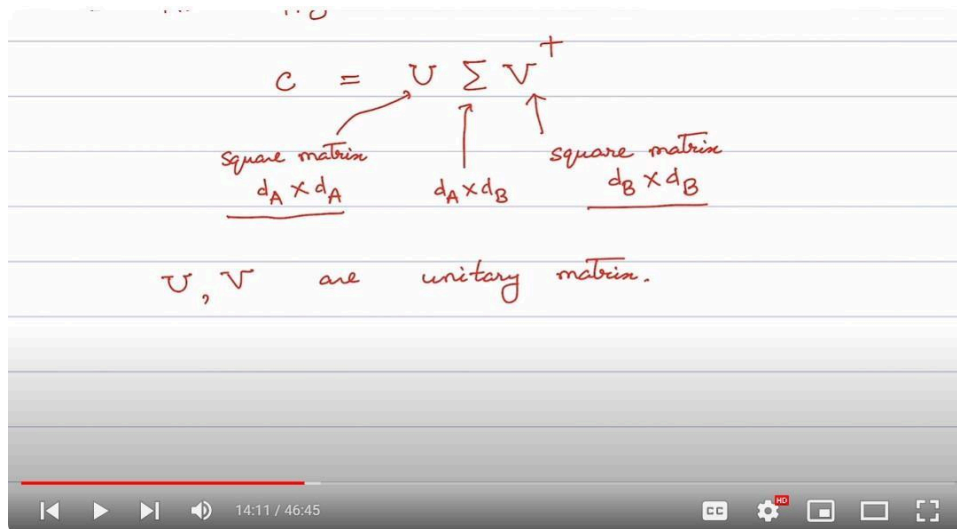 C = U Σ V†
square matrix
d_A × d_A
d_A × d_B
square matrix
d_B × d_B
U, V are unitary matrix.
14:11 / 46:45
CC
HD